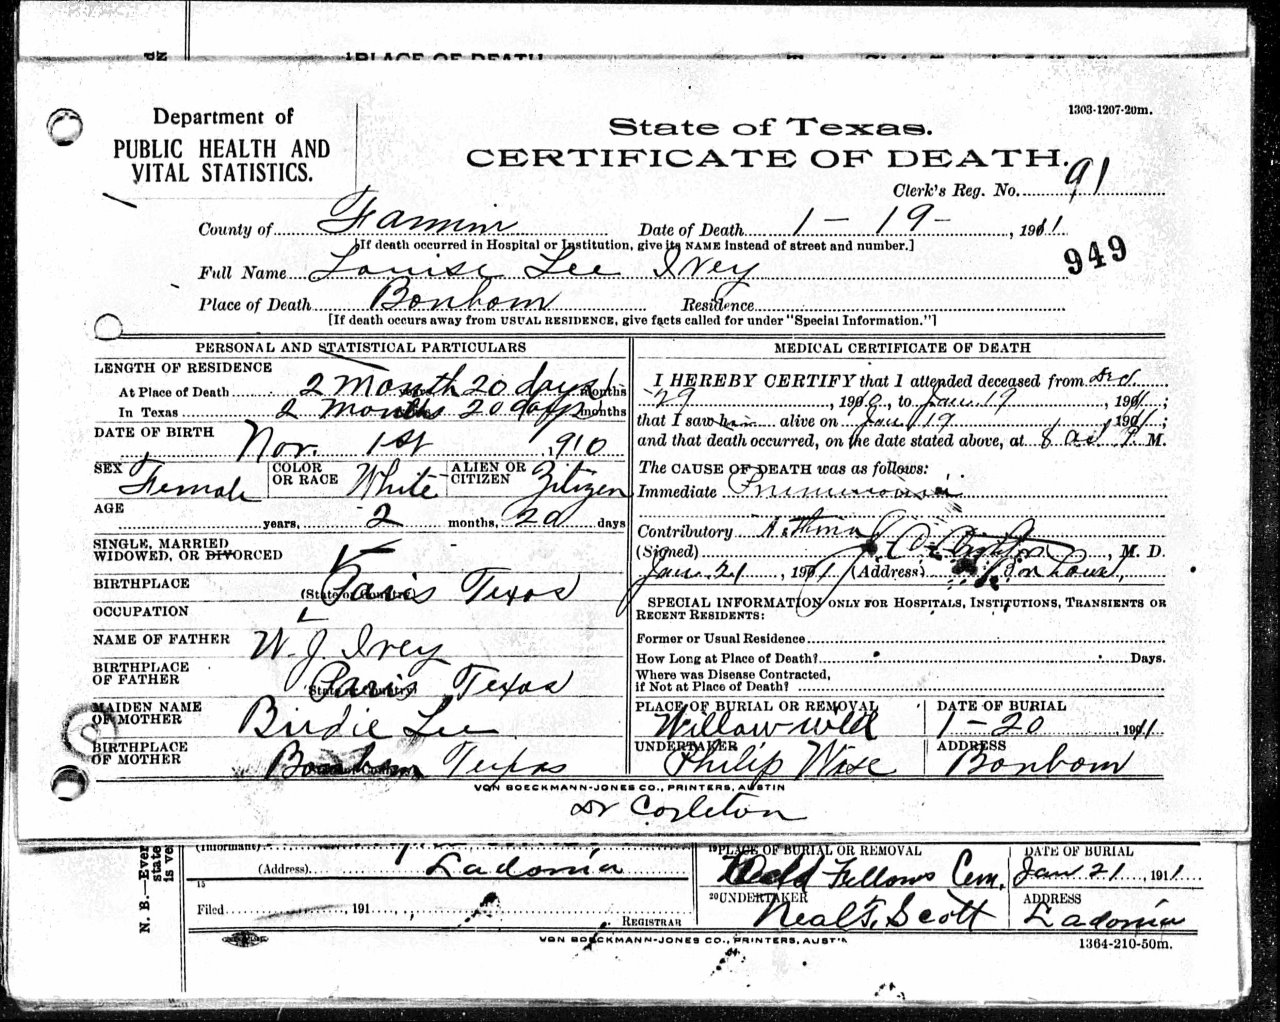 PLACE OF DEATH
1303-1207-20m.
Department of
PUBLIC HEALTH AND
VITAL STATISTICS.
State of Texas.
CERTIFICATE OF DEATH.
Clerk's Reg. No. 91
County of Fannin Date of Death 1-19-, 1911
[If death occurred in Hospital or Institution, give its NAME instead of street and number.]
949
Full Name Louise Lee Ivey
Place of Death Bonham Residence
[If death occurs away from USUAL RESIDENCE, give facts called for under "Special Information."]
PERSONAL AND STATISTICAL PARTICULARS
LENGTH OF RESIDENCE
At Place of Death 2 Month 20 days months
In Texas 2 Months 20 days months
DATE OF BIRTH
Nov. 1st, 1910
SEX Female COLOR OR RACE White ALIEN OR CITIZEN Citizen
AGE
years, 2 months, 20 days
SINGLE, MARRIED
WIDOWED, OR DIVORCED
BIRTHPLACE
(State or Country) Paris Texas
OCCUPATION
NAME OF FATHER W. J. Ivey
BIRTHPLACE
OF FATHER
(State or Country) Paris Texas
MAIDEN NAME
OF MOTHER Birdie Lee
BIRTHPLACE
OF MOTHER Bonham Texas
MEDICAL CERTIFICATE OF DEATH
I HEREBY CERTIFY that I attended deceased from Dec
29, 190, to Jan 19, 1911;
that I saw him alive on Jan 19 1911;
and that death occurred, on the date stated above, at 8 P. M.
The CAUSE OF DEATH was as follows:
Immediate Pneumonia
Contributory Asthma
(Signed) M. D.
Jan. 21, 1911 (Address) Bonham,
SPECIAL INFORMATION ONLY FOR HOSPITALS, INSTITUTIONS, TRANSIENTS OR
RECENT RESIDENTS:
Former or Usual Residence
How Long at Place of Death? Days.
Where was Disease Contracted,
if Not at Place of Death?
PLACE OF BURIAL OR REMOVAL DATE OF BURIAL
Willow wild 1-20 1911
UNDERTAKER ADDRESS
Philip Wise Bonham
VON BOECKMANN-JONES CO., PRINTERS, AUSTIN
Dr Corleton
N. B.—Ever
state
is ve
(Informant)
(Address) Ladonia
15
Filed , 191 ,
REGISTRAR
19 PLACE OF BURIAL OR REMOVAL DATE OF BURIAL
Odd Fellows Cem. Jan 21, 1911.
20 UNDERTAKER ADDRESS
Neal T. Scott Ladonia
VON BOECKMANN-JONES CO., PRINTERS, AUSTIN
1364-210-50m.